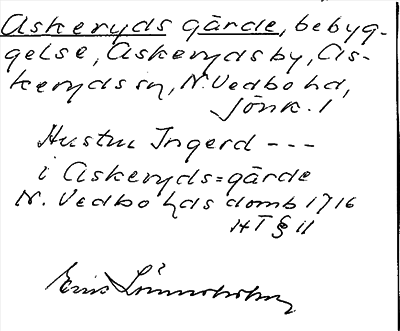 Askeryds gärde, bebyg-
gelse, Askerydsby, As-
keryds sn, N. Vedbo hd,
Jönk. l
Hustru Ingerd - - -
i Askeryds=gärde
N. Vedbo hds domb 1716
HT § 11
Eric